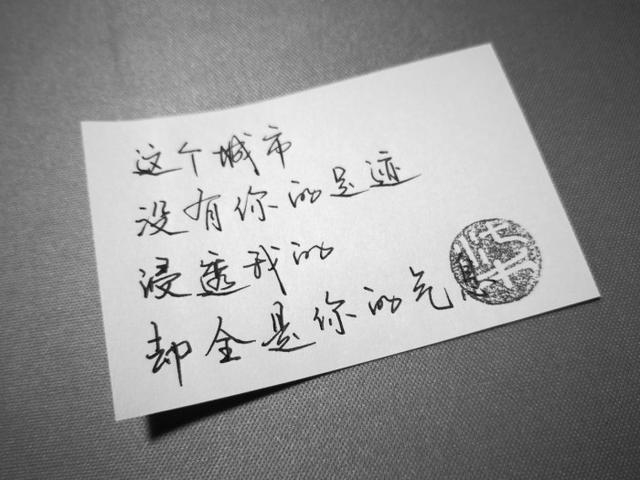 这个城市
没有你的足迹
浸透我的
却全是你的气息